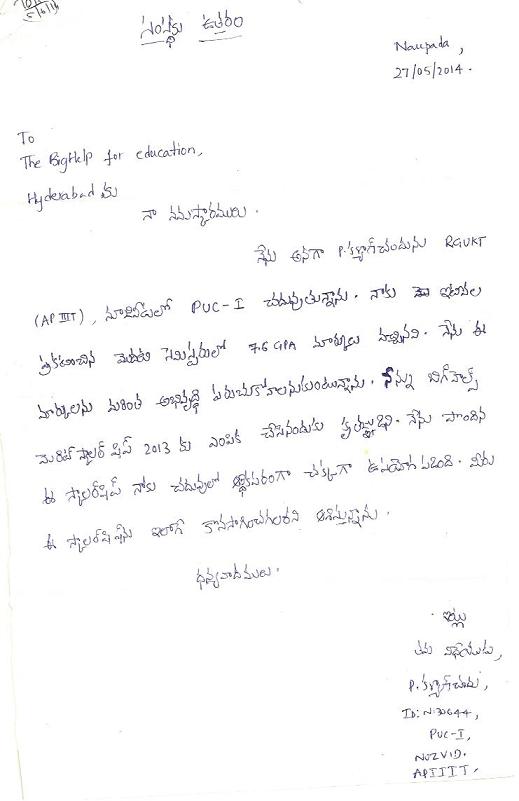 సంస్థకు ఉత్తరం
Naupada,
27/05/2014.
To
The BigHelp for education,
Hyderabad కు
నా నమస్కారములు.
నేను అనగా P.కళ్యాణ్‌చందును RGUKT
(AP IIIT), నూజివీడులో PUC-I చదువుతున్నాను. నాకు ఇటీవల
ప్రకటించిన మొదటి సెమిస్టరులో 7.6 GPA మార్కులు వచ్చినవి. నేను ఈ
మార్కులను మరింత అభివృద్ధి పరుచుకోవాలనుకుంటున్నాను. నన్ను బిగ్‌హెల్ప్
మెరిట్ స్కాలర్ షిప్ 2013 కు ఎంపిక చేసినందుకు కృతజ్ఞుడిని. నేను పొందిన
ఈ స్కాలర్‌షిప్ నాకు చదువులో ఆర్థికపరంగా చక్కగా ఉపయోగపడింది. మీరు
ఈ స్కాలర్‌షిప్‌ను ఇలాగే కొనసాగించగలరని ఆశిస్తున్నాను.
ధన్యవాదములు.
ఇట్లు
తమ విధేయుడు,
P.కళ్యాణ్‌చందు,
ID: N130644,
PUC-I,
NUZVID.
APIIIT.